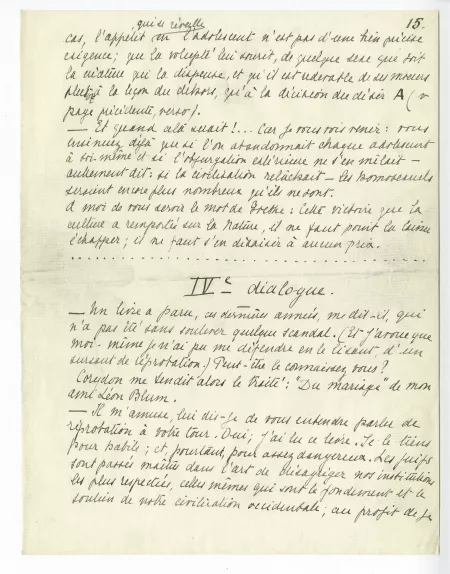 qui se réveille
15.
cas, l'appétit de l'adolescent n'est pas d'une bien précise
exigence; que la volupté lui sourit, de quelque sexe que soit
la créature qui la dispense, et qu'il est redevable de ses moeurs
plutôt à la leçon du dehors, qu'à la décision du désir A (v
page précédente, verso).
— Et quand cela serait!... Car je vous vois venir: vous
insinuez déjà que si l'on abandonnait chaque adolescent
à soi-même et si l'objurgation extérieure ne s'en mêlait —
autrement dit: si la civilisation relâchait — les homosexuels
seraient encore plus nombreux qu'ils ne sont.
A moi de vous servir le mot de Goethe: Cette victoire que la
culture a remportée sur la Nature, il ne faut point la laisser
échapper; il ne faut s'en dessaisir à aucun prix.
IVe dialogue.
— Un livre a paru, ces dernières années, me dit-il, qui
n'a pas été sans soulever quelque scandale. (Et j'avoue que
moi-même je n'ai pu me défendre en le lisant, d'un
sursaut de réprobation.) Peut-être le connaissez vous?
Corydon me tendit alors le traité: "Du mariage" de mon
ami Léon Blum.
— Il m'amuse, lui dis-je de vous entendre parler de
réprobation à votre tour. Oui; j'ai lu ce livre. Je le tiens
pour habile; et, pourtant, pour assez dangereux. Les juifs
sont passés maîtres dans l'art de désagréger nos institutions
les plus respectées, celles mêmes qui sont le fondement et le
soutien de notre civilisation occidentale; au profit de je